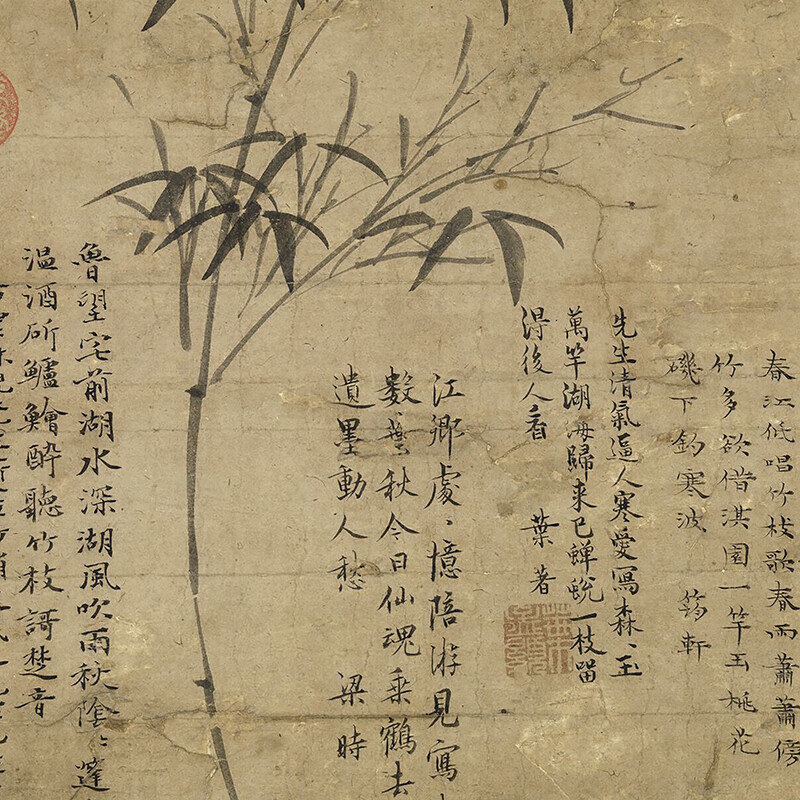 春江低唱竹枝歌春雨蕭蕭傍
竹多欲借淇園一竿玉桃花
磯下釣寒波 筠軒
先生清氣逼人寒愛寫森〻玉
萬竿湖海歸來已蟬蛻一枝留
得後人看 葉著
江鄉處〻憶陪游見寫
數葉秋今日仙魂乘鶴去
遺墨動人愁 梁時
魯望宅前湖水深湖風吹雨秋陰〻蓬
溫酒斫鱸鱠醉聽竹枝謌楚音